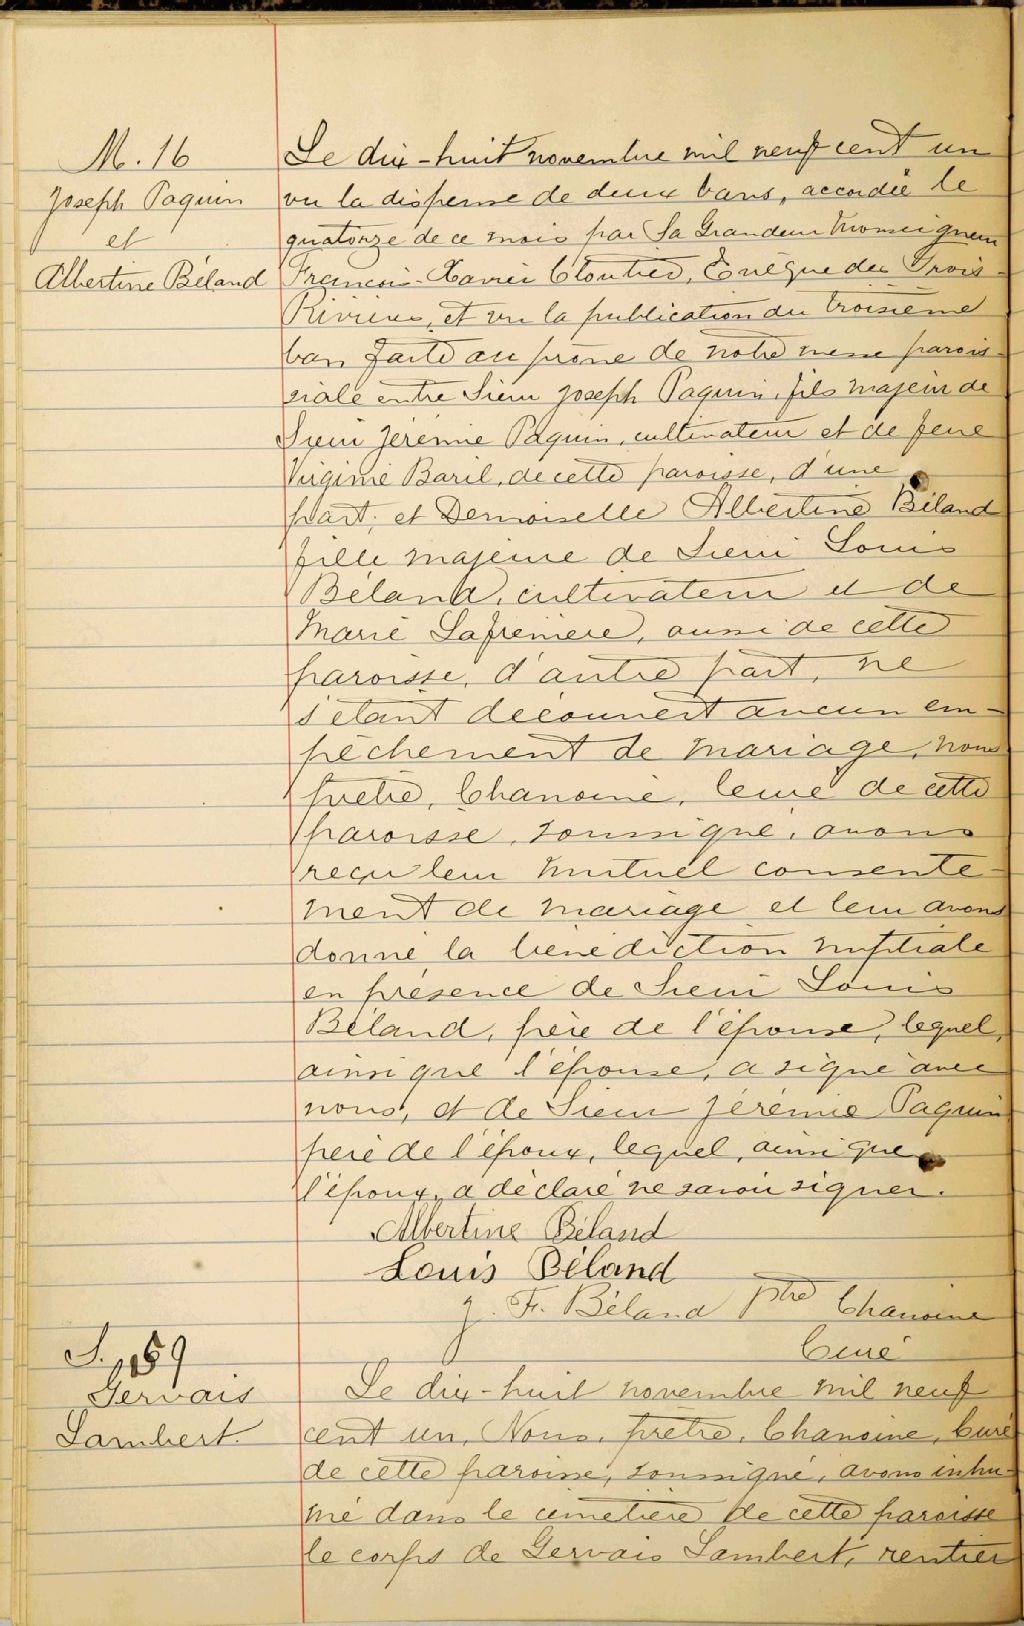 M. 16
Joseph Paquin
et
Albertine Béland
Le dix-huit novembre mil neuf cent un
vu la dispense de deux bans, accordée le
quatorze de ce mois par Sa Grandeur Monseigneur
François-Xavier Cloutier, Evêque des Trois-
Rivières, et vu la publication du troisième
ban faite au prône de notre messe parois-
siale entre Sieur Joseph Paquin, fils majeur de
Sieur Jérémie Paquin, cultivateur et de feue
Virginie Baril, de cette paroisse, d'une
part; et Demoiselle Albertine Béland
fille majeure de Sieur Louis
Béland, cultivateur et de
Marie Lafrenière, aussi de cette
paroisse, d'autre part, ne
s'étant découvert aucun em-
pêchement de mariage, nous
prêtre, Chanoine, Curé de cette
paroisse, soussigné, avons
reçu leur mutuel consente-
ment de mariage et leur avons
donné la bénédiction nuptiale
en présence de Sieur Louis
Béland, père de l'épouse, lequel,
ainsi que l'épouse, a signé avec
nous, et de Sieur Jérémie Paquin
père de l'époux, lequel, ainsi que
l'époux, a déclaré ne savoir signer.
Albertine Béland
Louis Béland
J. F. Béland Ptre Chanoine
Curé
S. 59
Gervais
Lambert.
Le dix-huit novembre mil neuf
cent un, Nous, prêtre, Chanoine, Curé
de cette paroisse, soussigné, avons inhu-
mé dans le cimetière de cette paroisse
le corps de Gervais Lambert, rentier